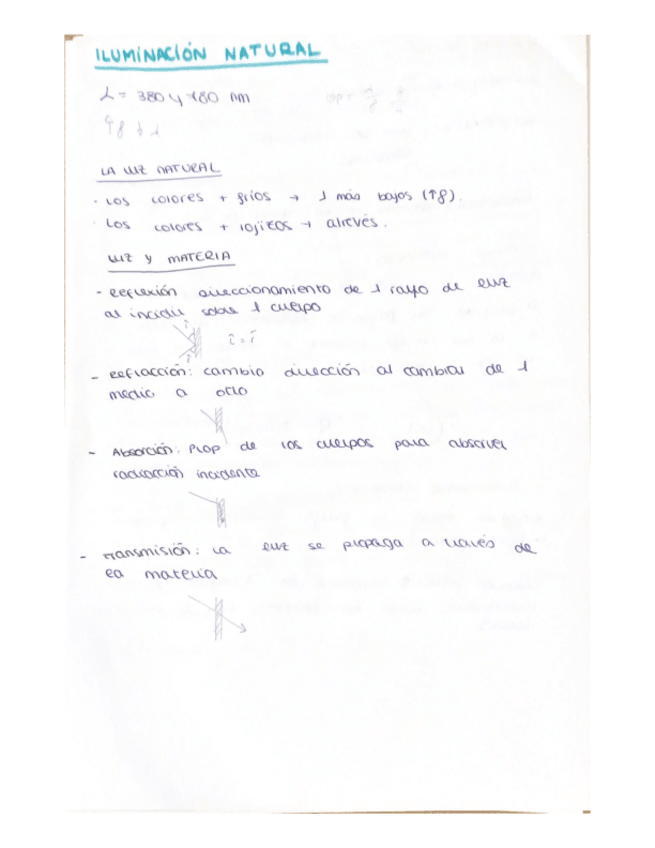 ILUMINACIÓN NATURAL
λ = 380 y 780 nm
↑f ↓ λ
LA LUZ NATURAL
· Los colores + fríos → λ más bajos (↑f).
· Los colores + rojizos → alrevés.
LUZ Y MATERIA
- Reflexión direccionamiento de 1 rayo de luz
al incidir sobre 1 cuerpo
î = r̂
- Refracción: cambio dirección al cambiar de 1
medio a otro
- Absorción: Prop de los cuerpos para absorver
radiacción incidente
- Transmisión: La luz se propaga a través de
la materia